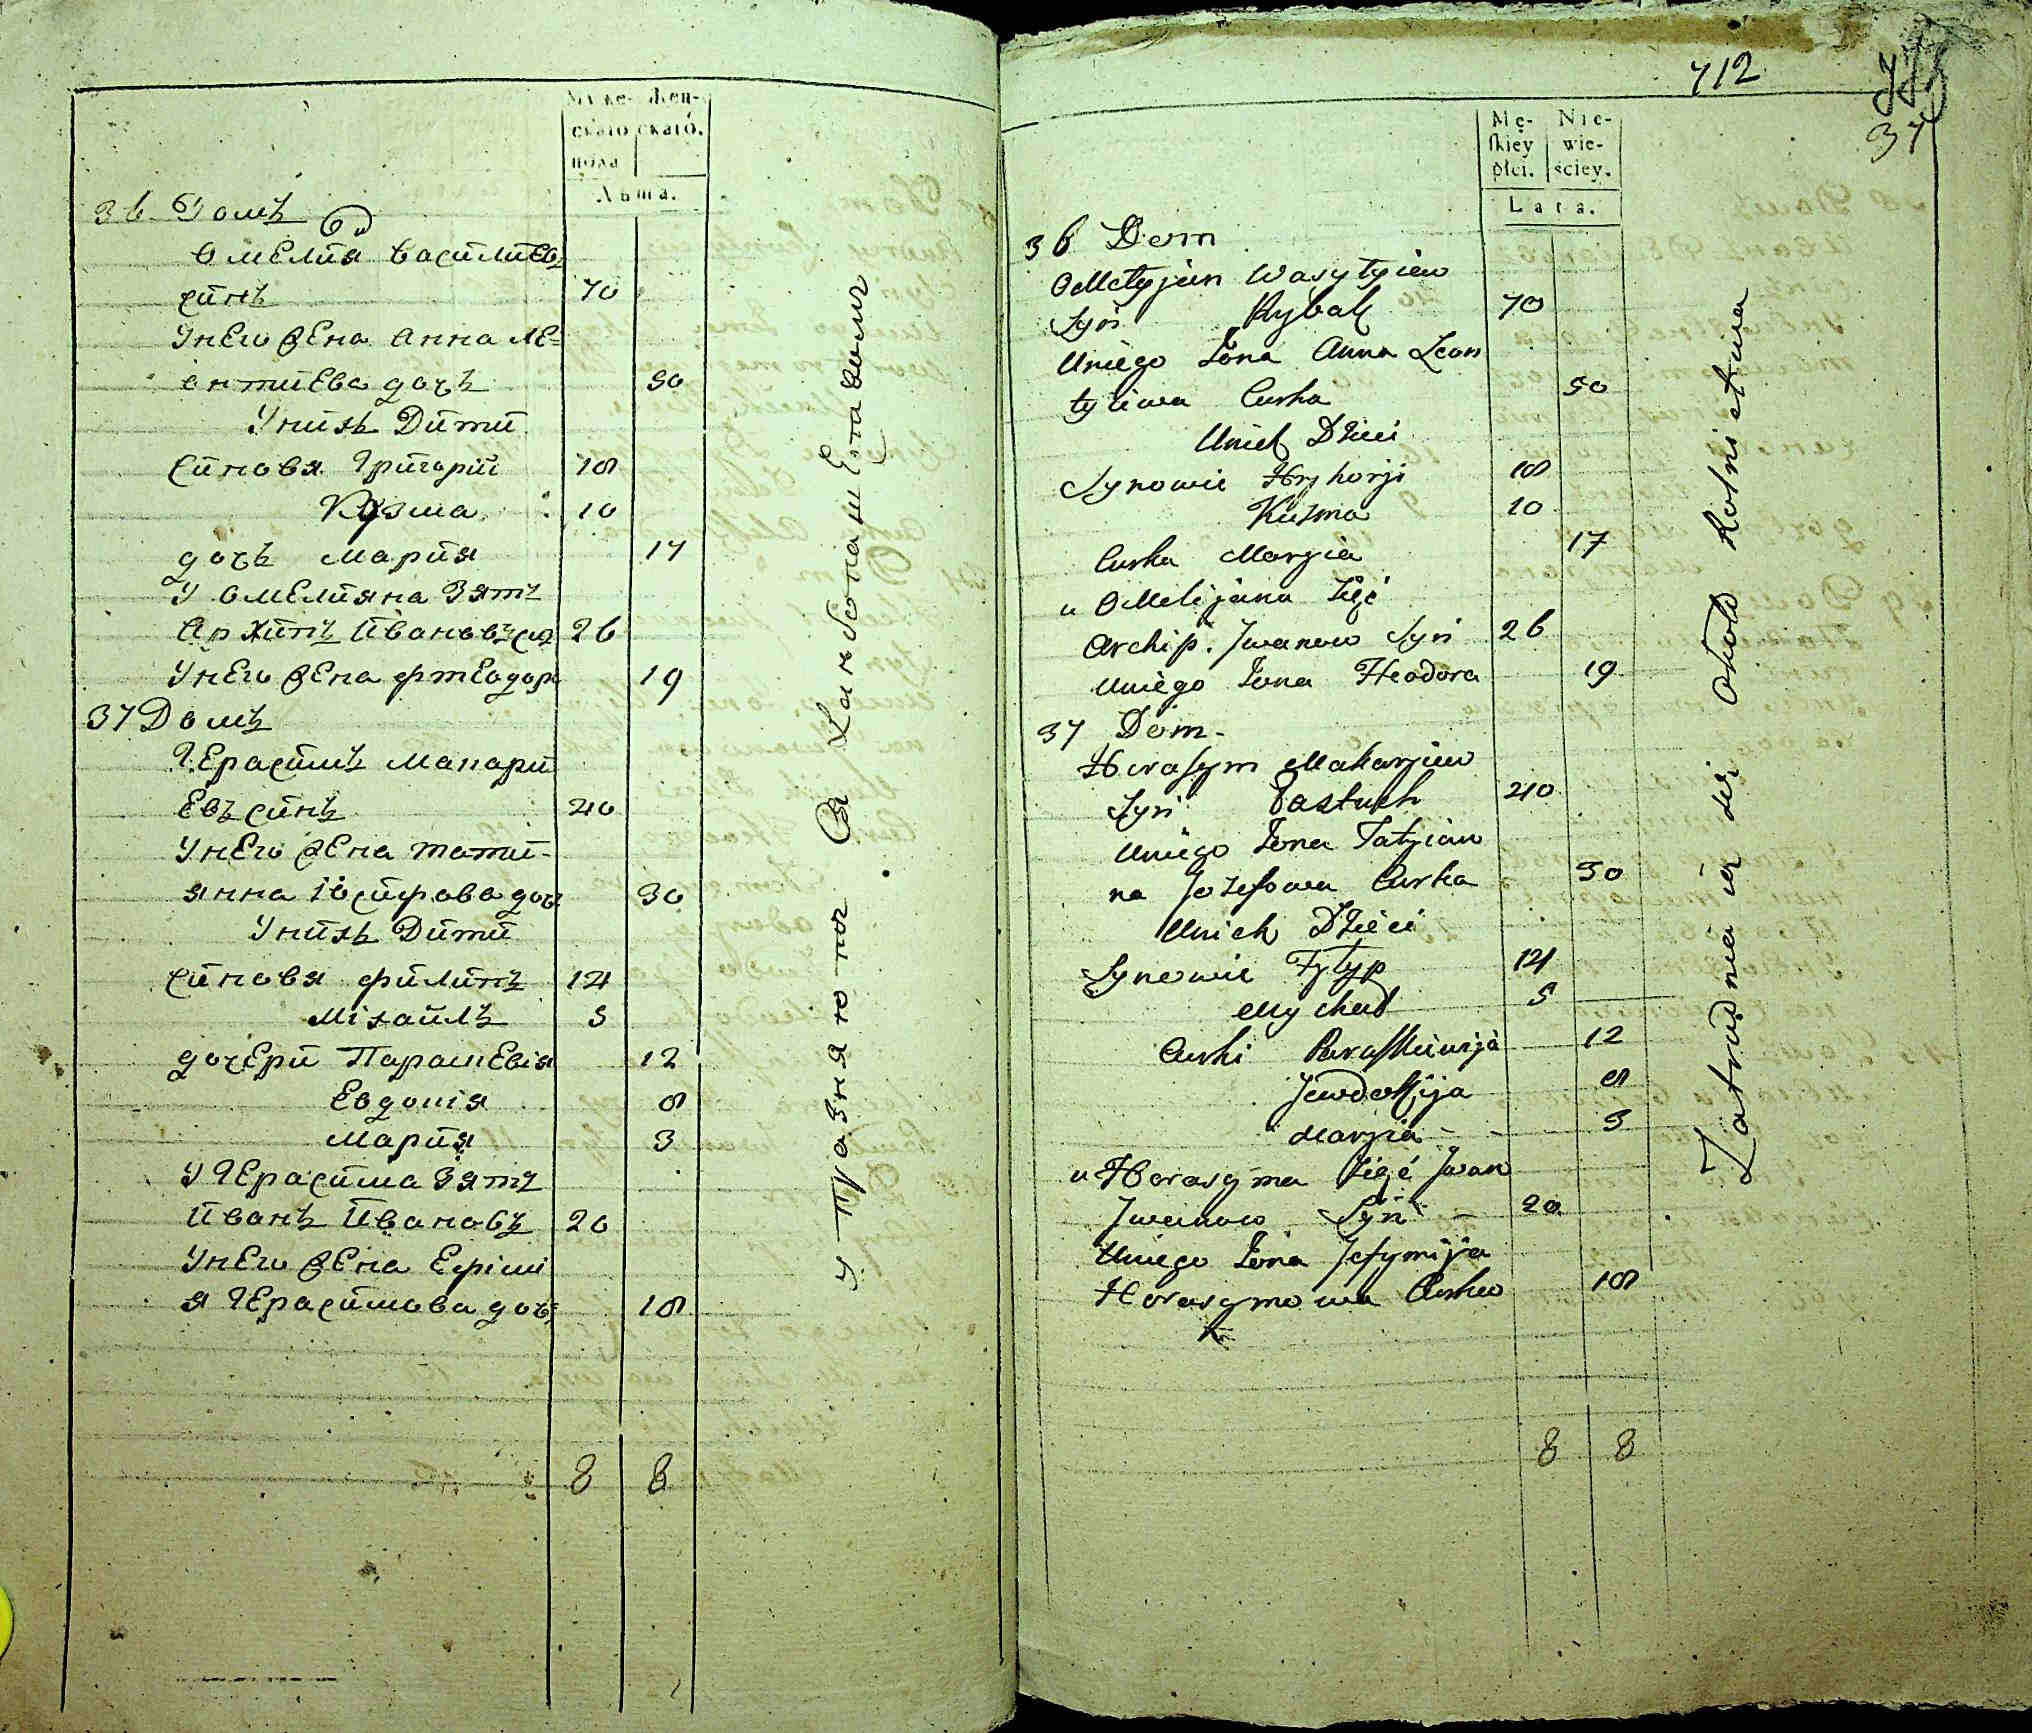 Муже- Жен-
скаго скаго.
пола
Лѣта.
36 Домъ
Омелия Василиевъ
синъ 70
Унего жена Анна Ле-
онтиева дочь 50
Унихъ Дити
синовя Григорий 18
Кузма 10
дочь Мария 17
У Омелияна зять
Архипъ Ивановъ си 26
Унего жена фтеодора 19
37 Домъ
Герасимъ Макари
евъ синъ 40
Унего жена Тати-
янна Іосифова дочь 30
Унихъ Дити
синовя филипъ 14
Міхаилъ 5
дочери Параскевія 12
Евдокія 8
Мария 3
У Герасима зять
Иванъ Ивановъ 20
Унего жена Ефімі
я Герасимова дочь 18
8 8
712
37
Mę- Nie-
skiey wie-
płci. ściey.
Lata.
36 Dom
OMełyjan Wasyłyiew
Syn Rybak 70
Uniego Żona Anna Leon
tyiewa Curka 50
Unich Dzieci
Synowie Hryhorji 18
Kuzma 10
Curka Maryia 17
u OMelijana Zięć
Archip Jwanow Syn 26
Uniego Żona Fteodora 19
37 Dom
Herasym Makaryiew
Syn Pastuch 40
Uniego Żona Tatyian
na Jozefowa Curka 30
Unich Dzieci
Synowie Fyłyp 14
Mychał 5
Curki Paraskiewija 12
Jewdokija 8
Maryia 3
u Herasyma Zięć Jwan
Jwanow Syn 20
Uniego Żona Jefymija
Herasymowa Curka 18
8 8
Zatrudniaią się około Rolnictwa